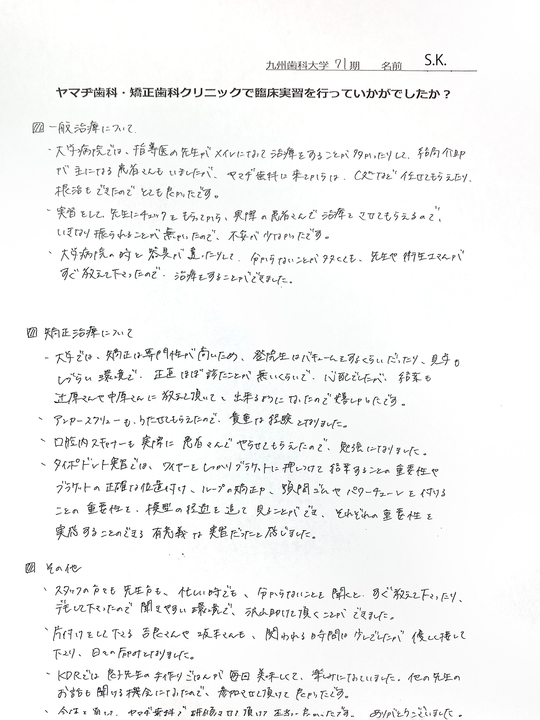 九州歯科大学 71期 名前 S.K.
ヤマヂ歯科・矯正歯科クリニックで臨床実習を行っていかがでしたか？
一般治療について
・大学病院では、指導医の先生がメインになって治療をすることが多かったりして、結局介助
が主になる患者さんもいましたが、ヤマヂ歯科に来てからは、CRなど任せてもらえたり、
根治もできたのでとても良かったです。
・実習をして、先生にチェックをもらってから、実際の患者さんで治療をさせてもらえるので、
いきなり振られることが無かったので、不安が少なかったです。
・大学病院の時と器具が違ったりして、分からないことが多くても、先生や衛生士さんが
すぐ教えて下さったので、治療をすることができました。
矯正治療について
・大学では、矯正は専門性が高いため、登院生はバキュームをするくらいだったり、見学も
しづらい環境で、正直ほぼ診たことが無いくらいで、心配でしたが、結紮も
辻原さんや中原さんに教えて頂いて、出来るようになったので嬉しかったです。
・アンカースクリューも、打たせてもらえたので、貴重な経験となりました。
・口腔内スキャナーも実際に患者さんでやらせてもらえたので、勉強になりました。
・タイポドント実習では、ワイヤーをしっかりブラケットに押しつけて結紮することの重要性や
ブラケットの正確な位置付け、ループの矯正力、顎間ゴムやパワーチェーンを付ける
ことの重要性を、模型の経過を追って見ることができ、それぞれの重要性を
実感することのできる有意義な実習だったと感じました。
その他
・スタッフの方々も先生方も、忙しい時でも、分からないことを聞くと、すぐ教えて下さったり、
デモして下さったので聞きやすい環境で、沢山助けて頂くことができました。
・片付けをして下さる 吉良さんや坂本さんも、関われる時間は少しでしたが優しく接して
下さり、日々の励みとなりました。
・KDRでは 先生の手作りごはんが毎回美味しくて、楽しみになっていました。他の先生の
お話も聞ける機会になったので、参加させて頂けて良かったです。
ヤマヂ歯科で研修させて頂けて本当に良かったです。ありがとうございました。